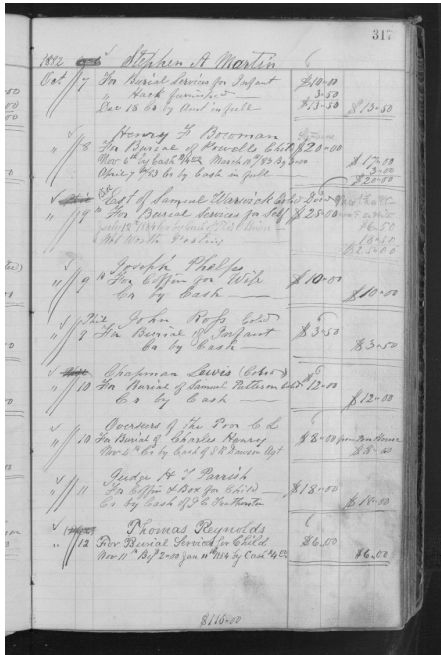 317
1882 Stephen A Martin
Oct 7 For Burial Services for Infant $10-00
" Hack furnished 3-50
Dec 18 Cr by Amt in full $13-50 $13-50
Henry F Bowman
" 8 For Burial of Powells Child $20-00
Nov 6th by Cash March 10th/83 By 3-00 $17-00
3-00
April 7th/83 Cr by Cash in full $20-00
East of Samuel Warwick Cold
" 9th For Burial Services for Self $25-00
$6-50
" 9th Joseph Phelps
For Coffin for Wife $10-00
Cr by Cash $10-00
John Ross Cold
" 9 For Burial of Infant $3-50
Cr by Cash $3-50
Chapman Lewis (Colored)
" 10 For Burial of Samuel Patterson Cold $12-00
Cr by Cash $12-00
Overseers of the Poor
" 10 For Burial of Charles Henry $8-00 from Poor House
Nov 6th Cr by Cash of S R Dawson Agt $8-00
Judge H T Parrish
" 11 For Coffin & Box for Child $18-00
Cr by Cash of $18-00
Thomas Reynolds
" 12 For Burial Services for Child $6.00
Nov 11th By 2-00 Jan 11th 1884 by Cash $4 $6.00
$115-00